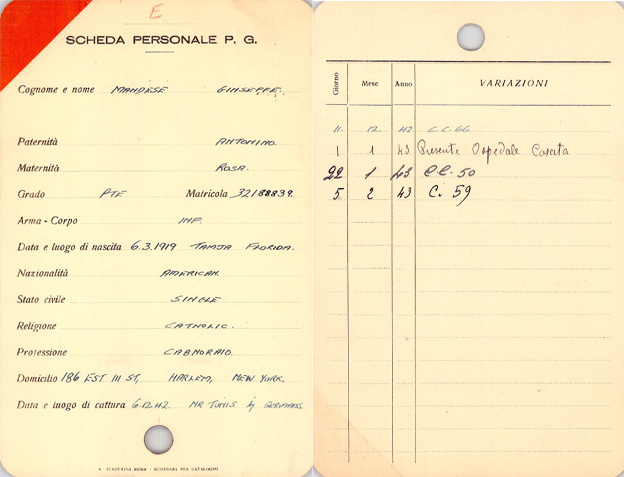 E
SCHEDA PERSONALE P. G.
Cognome e nome MANDESE GINSEFFE.
Paternità ANTONINO.
Maternità ROSA.
Grado PTE Matricola 32188839.
Arma - Corpo INF.
Data e luogo di nascita 6.3.1919 TAMJA FLORIDA.
Nazionalità AMERICAN.
Stato civile SINGLE
Religione CATHOLIC.
Professione CABNORAID.
Domicilio 186 EST III ST, HARLEM, NEW YORK.
Data e luogo di cattura 6.12.42. NR TUNIS by GERMANS.
Giorno Mese Anno VARIAZIONI
11. 12. 42 C.C. 66
1 1 43 Presente Ospedale Caserta
22 1 43 C.C. 50
5 2 43 C. 59